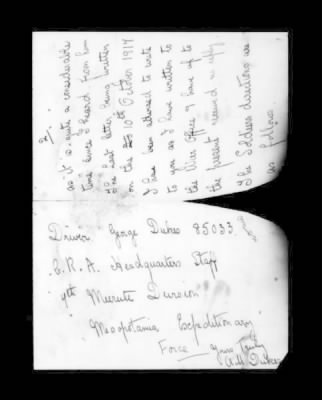 2.
as it is quite a considerable
time since I heard from him
the last letter being written
on the 10th October 1917
I have been advised to write
to you as I have written to
the War Office & have up to
the present received no reply
The Soldiers directions are
as follows
Driver George Dukes 85033
C.R.A. Headquarters Staff
7th Meerute Division
Mesopotamia Expeditionary
Force
Yours Truly
Dukes